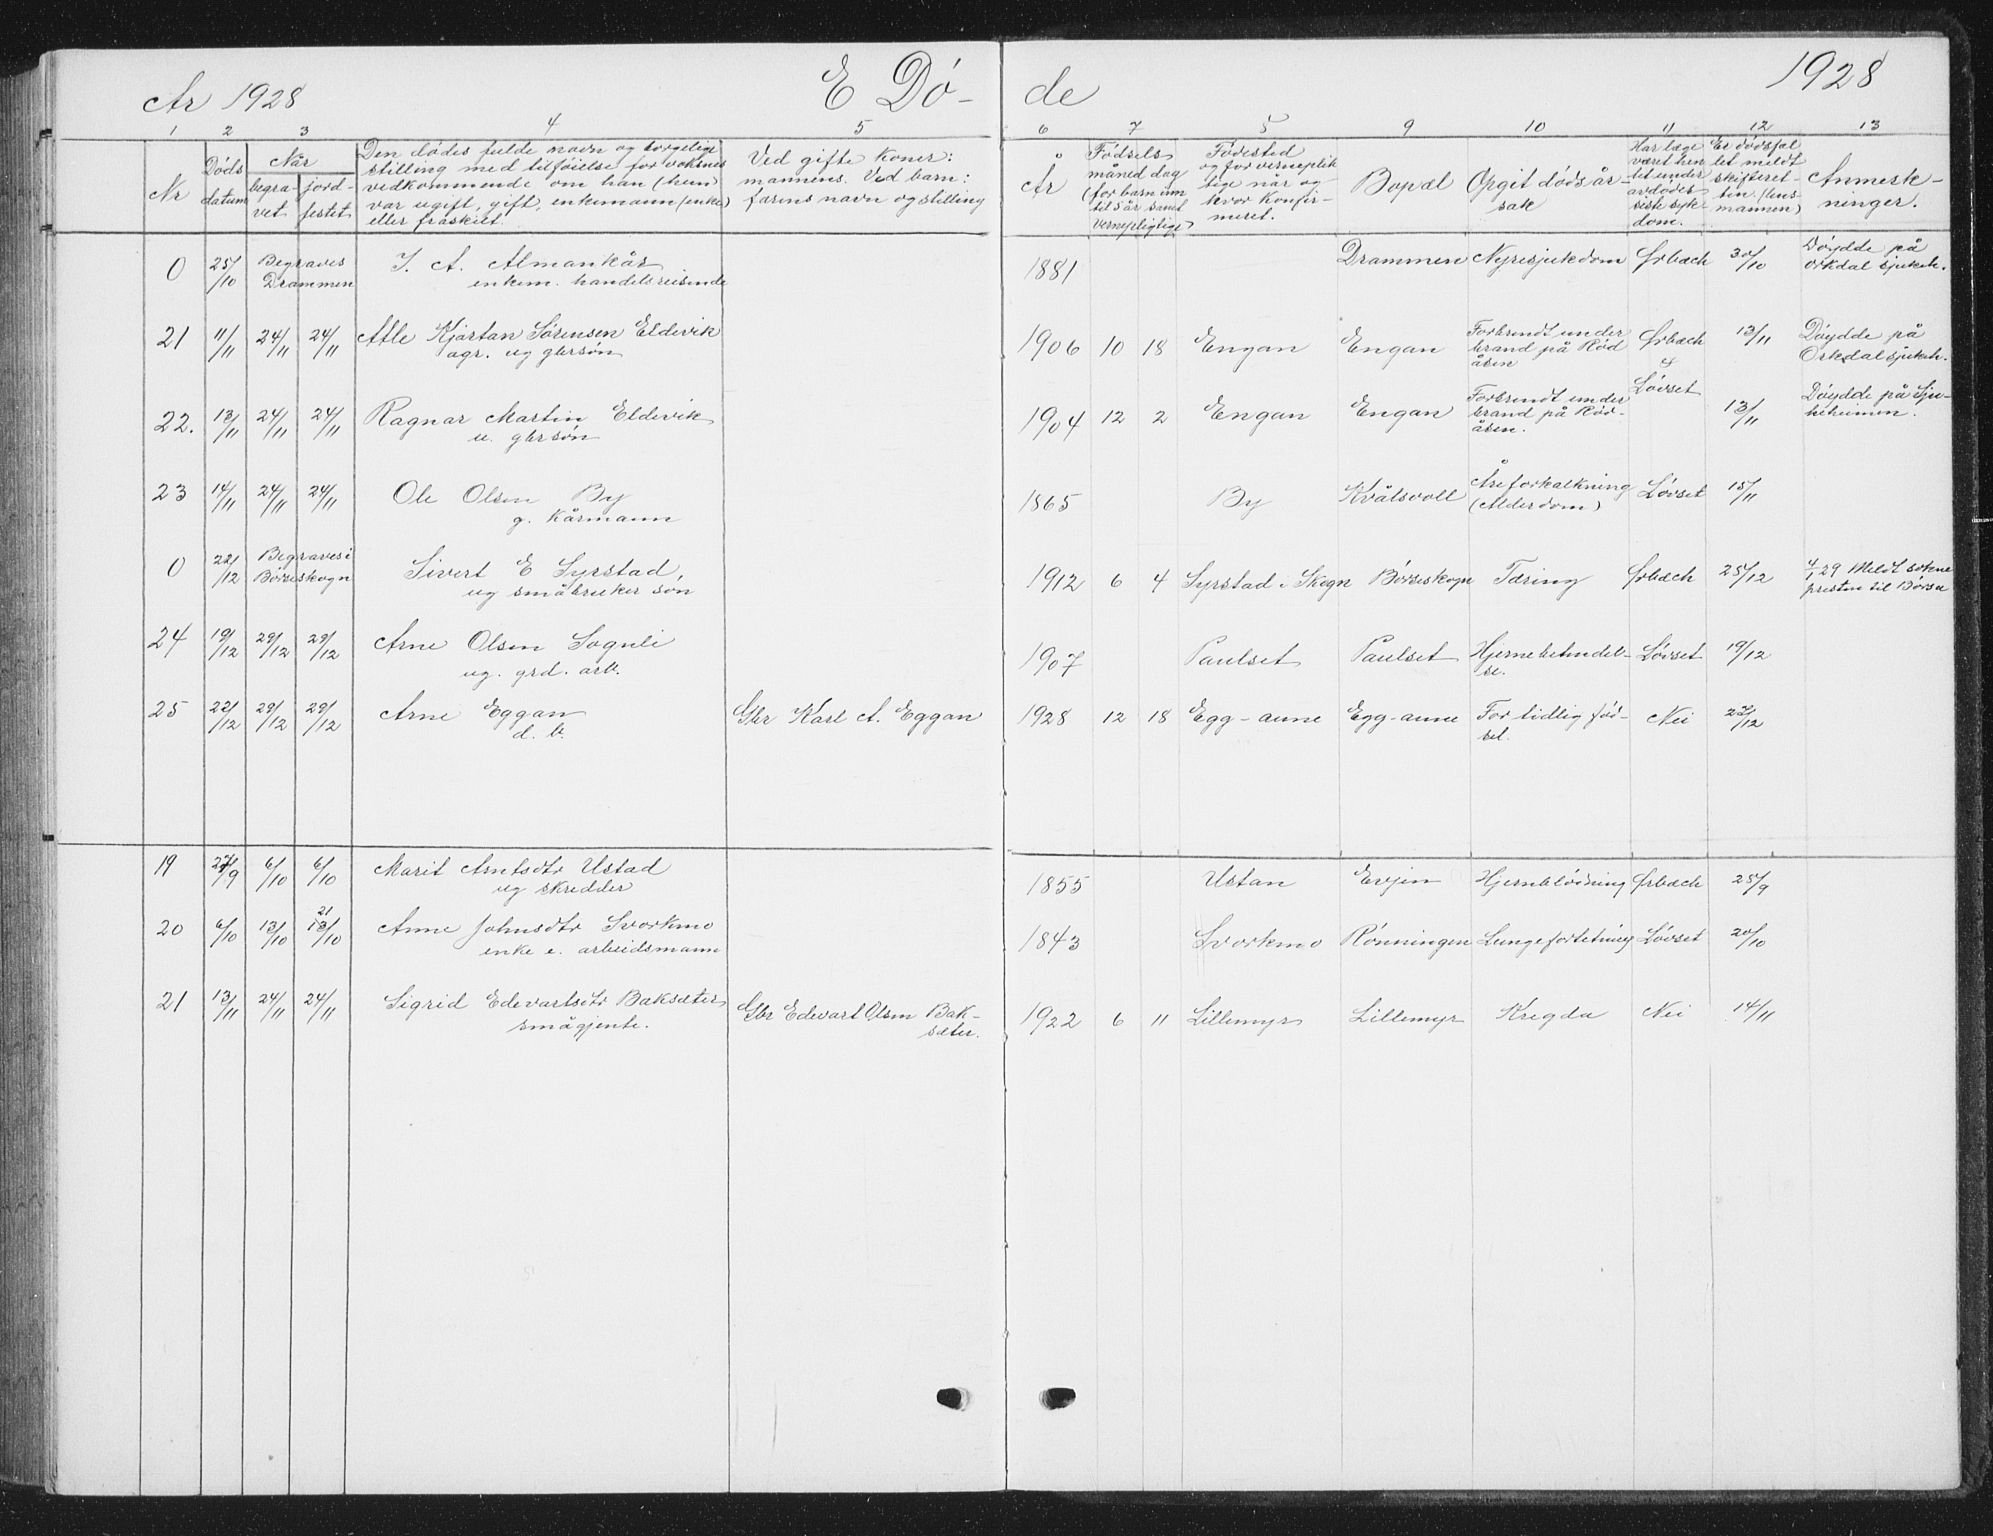 År 1928 E Dø- de 1928
1 2 3 4 5 6 7 5 9 10 11 12 13
Nr
Døds datum
Når
begra- vet
jord- festet
Den dødes fulde navn og borgelige
stilling med tilføielse for voksnes
vedkommende om han (hun)
var ugift, gift, enkemann (enke)
eller fraskilt.
Ved gifte koner:
mannens. Ved barn:
farens navn og stilling
År
Fødsels
måned dag
(for barn inn
til 5 år samt
vernepligtige)
Fødested
og for verneplik
tige når og
hvor konfir-
meret.
Bopæl
Opgit dødsår-
sak
Har læge
været hen
tet under
avdødes
siste syk-
dom.
Er dødsfal
let meldt
skifteret-
ten. (lens-
mannen)
Anmerk-
ninger.
0 25/10 Begraves J. A. Almankås 1881 Drammen Nyresjukdom Ørbæch 30/10 Døydde på
Drammen enkem. handelsreisende Orkdal sjukeh.
21 11/11 24/11 24/11 Atle Kjartan Sørensen Eldevik 1906 10 18 Engan Engan Forbrendt under Ørbæch 13/11 Døydde på
agr. ug gbrsøn brand på Rød & Orkdal sjukeh.
åsen Løvset
22. 13/11 24/11 24/11 Ragnar Martin Eldevik 1904 12 2 Engan Engan Forbrendt under 13/11 Døydde på Sju-
u. gbrsøn brand på Rød- keheimen.
åsen.
23 14/11 24/11 24/11 Ole Olsen By 1865 By Kvålsvoll Åreforkalkning Løvset 15/11
g. kårmann (Alderdom)
0 22/12 Begraves i Sivert E Syrstad, 1912 6 4 Syrstad i Skogn Børseskogn Tæring Ørbæch 25/12 4/1 29 Meldt sokne
Børseskogn ug småbruker søn presten til Børsa
24 19/12 29/12 29/12 Arne Olsen Sognli 1907 Paulset Paulset Hjernebetendel- Løvset 19/12
ug. grd. arb. se.
25 22/12 29/12 29/12 Arne Eggan Gbr Karl A. Eggan 1928 12 18 Egg-aune Egg-aune For tidlig fød- Nei 22/12
d. b. sel.
19 27/9 6/10 6/10 Marit Arntsdtr Ustad 1855 Ustan Evjen Hjerneblødning Ørbæch 25/9
ug skredder
21
20 6/10 13/10 13/10 Anne Johnsdtr Svorkmo 1843 Svorkmo Rønningen Lungefortetning Løvset 20/10
enke e. arbeidsmann
21 13/11 24/11 24/11 Sigrid Edevartsdtr Baksæter Gbr Edevart Olsen Bak- 1922 6 11 Lillemyr Lillemyr Kregda Nei 14/11
småjente. sæter.